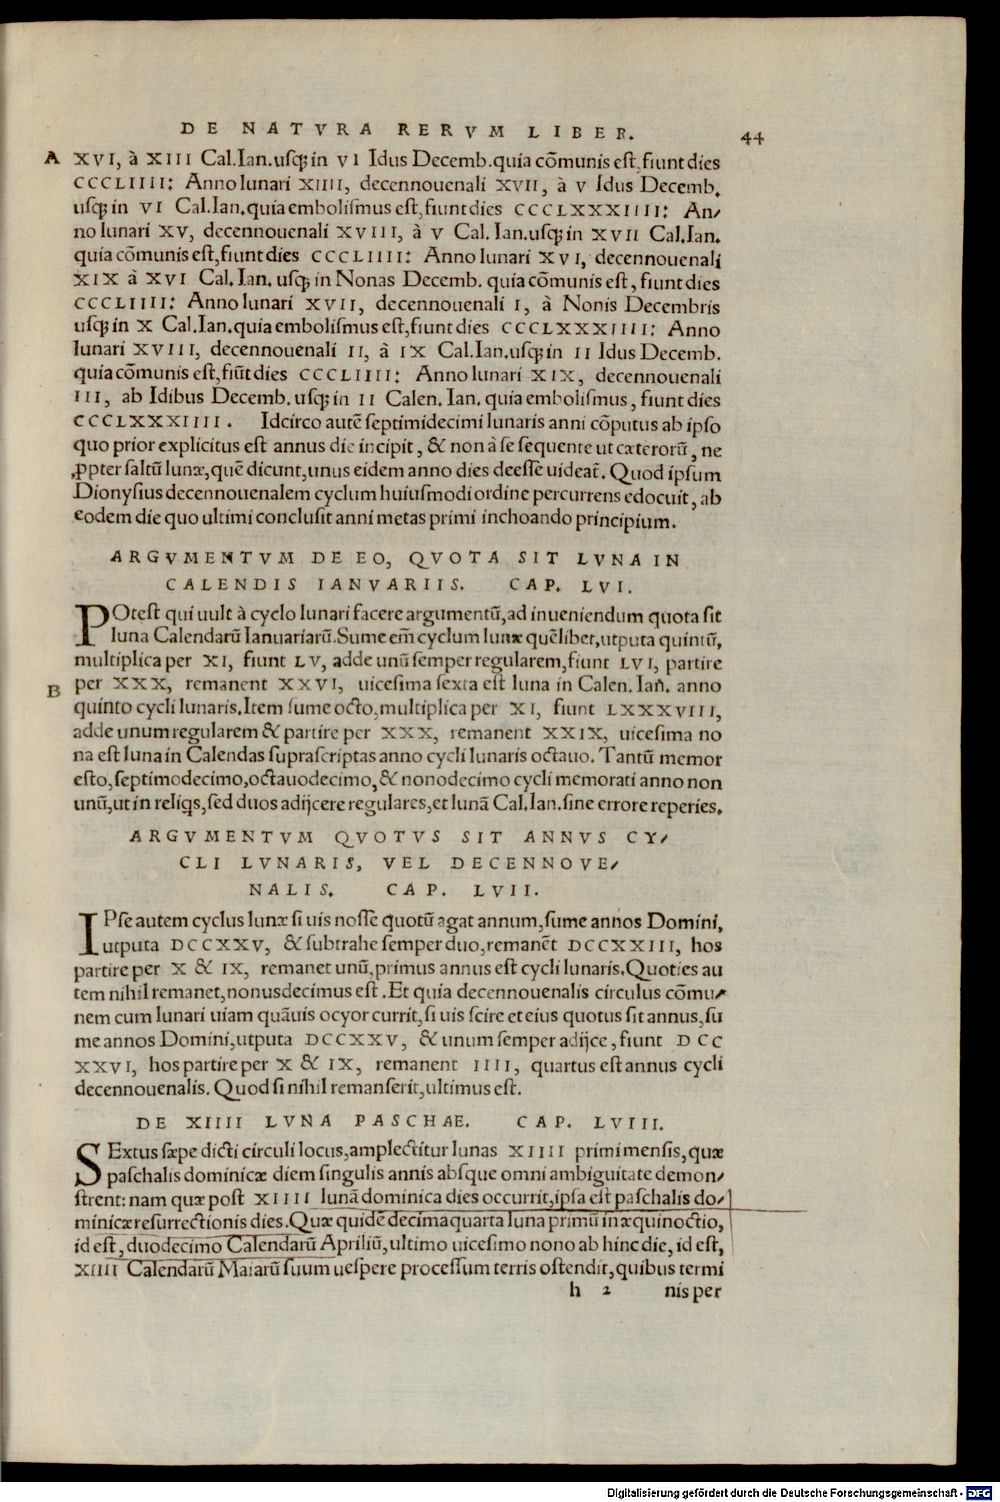 DE NATVRA RERVM LIBER. 44
A XVI, à XIII Cal.Ian.usq; in VI Idus Decemb.quia cōmunis est,fiunt dies
CCCLIIII: Anno lunari XIIII, decennouenali XVII, à V Idus Decemb.
usq; in VI Cal.Ian.quia embolismus est,fiunt dies CCCLXXXIIII: An/
no lunari XV, decennouenali XVIII, à V Cal. Ian.usq; in XVII Cal.Ian.
quia cōmunis est,fiunt dies CCCLIIII: Anno lunari XVI, decennouenali
XIX à XVI Cal. Ian. usq; in Nonas Decemb. quia cōmunis est, fiunt dies
CCCLIIII: Anno lunari XVII, decennouenali I, à Nonis Decembris
usq; in X Cal.Ian.quia embolismus est,fiunt dies CCCLXXXIIII: Anno
lunari XVIII, decennouenali II, à IX Cal.Ian.usq; in II Idus Decemb.
quia cōmunis est,fiūt dies CCCLIIII: Anno lunari XIX, decennouenali
III, ab Idibus Decemb. usq; in II Calen. Ian. quia embolismus, fiunt dies
CCCLXXXIIII. Idcirco autē septimidecimi lunaris anni cōputus ab ipso
quo prior explicitus est annus die incipit, & non à se sequente ut cæterorū, ne
ꝓpter saltū lunæ,quē dicunt,unus eidem anno dies deesse uideat̄. Quod ipsum
Dionysius decennouenalem cyclum huiusmodi ordine percurrens edocuit, ab
eodem die quo ultimi conclusit anni metas primi inchoando principium.
ARGVMENTVM DE EO, QVOTA SIT LVNA IN
CALENDIS IANVARIIS. CAP. LVI.
POtest qui uult à cyclo lunari facere argumentū,ad inueniendum quota sit
luna Calendarū Ianuariarū.Sume em̄ cyclum lunæ quēliber,utputa quintū,
multiplica per XI, fiunt LV, adde unū semper regularem,fiunt LVI, partire
B per XXX, remanent XXVI, uicesima sexta est luna in Calen. Iañ. anno
quinto cycli lunaris.Item sume octo,multiplica per XI, fiunt LXXXVIII,
adde unum regularem & partire per XXX, remanent XXIX, uicesima no
na est luna in Calendas suprascriptas anno cycli lunaris octauo. Tantū memor
esto,septimodecimo,octauodecimo,& nonodecimo cycli memorati anno non
unū,ut in reliq̄s,sed duos adijcere regulares,et lunā Cal.Ian.sine errore reperies.
ARGVMENTVM QVOTVS SIT ANNVS CY/
CLI LVNARIS, VEL DECENNOVE/
NALIS. CAP. LVII.
IPse autem cyclus lunæ si uis nosse quotū agat annum,sume annos Domini,
utputa DCCXXV, & subtrahe semper duo,remanēt DCCXXIII, hos
partire per X & IX, remanet unū,primus annus est cycli lunaris.Quoties au
tem nihil remanet,nonusdecimus est .Et quia decennouenalis circulus cōmu/
nem cum lunari uiam quāuis ocyor currit,si uis scire et eius quotus sit annus,su
me annos Domini,utputa DCCXXV, & unum semper adijce, fiunt DCC
XXVI, hos partire per X & IX, remanent IIII, quartus est annus cycli
decennouenalis. Quod si nihil remanserit,ultimus est.
DE XIIII LVNA PASCHAE. CAP. LVIII.
SExtus sæpe dicti circuli locus,amplectitur lunas XIIII primi mensis, quæ
paschalis dominicæ diem singulis annis absque omni ambiguitate demon/
strent: nam quæ post XIIII lunā dominica dies occurrit,ipsa est paschalis do/
minicæ resurrectionis dies.Quæ quidē decimaquarta luna primū in æquinoctio,
id est, duodecimo Calendarū Apriliū,ultimo uicesimo nono ab hinc die, id est,
XIIII Calendarū Maiarū suum uespere processum terris ostendit, quibus termi
h 2 nis per
Digitalisierung gefördert durch die Deutsche Forschungsgemeinschaft - DFG